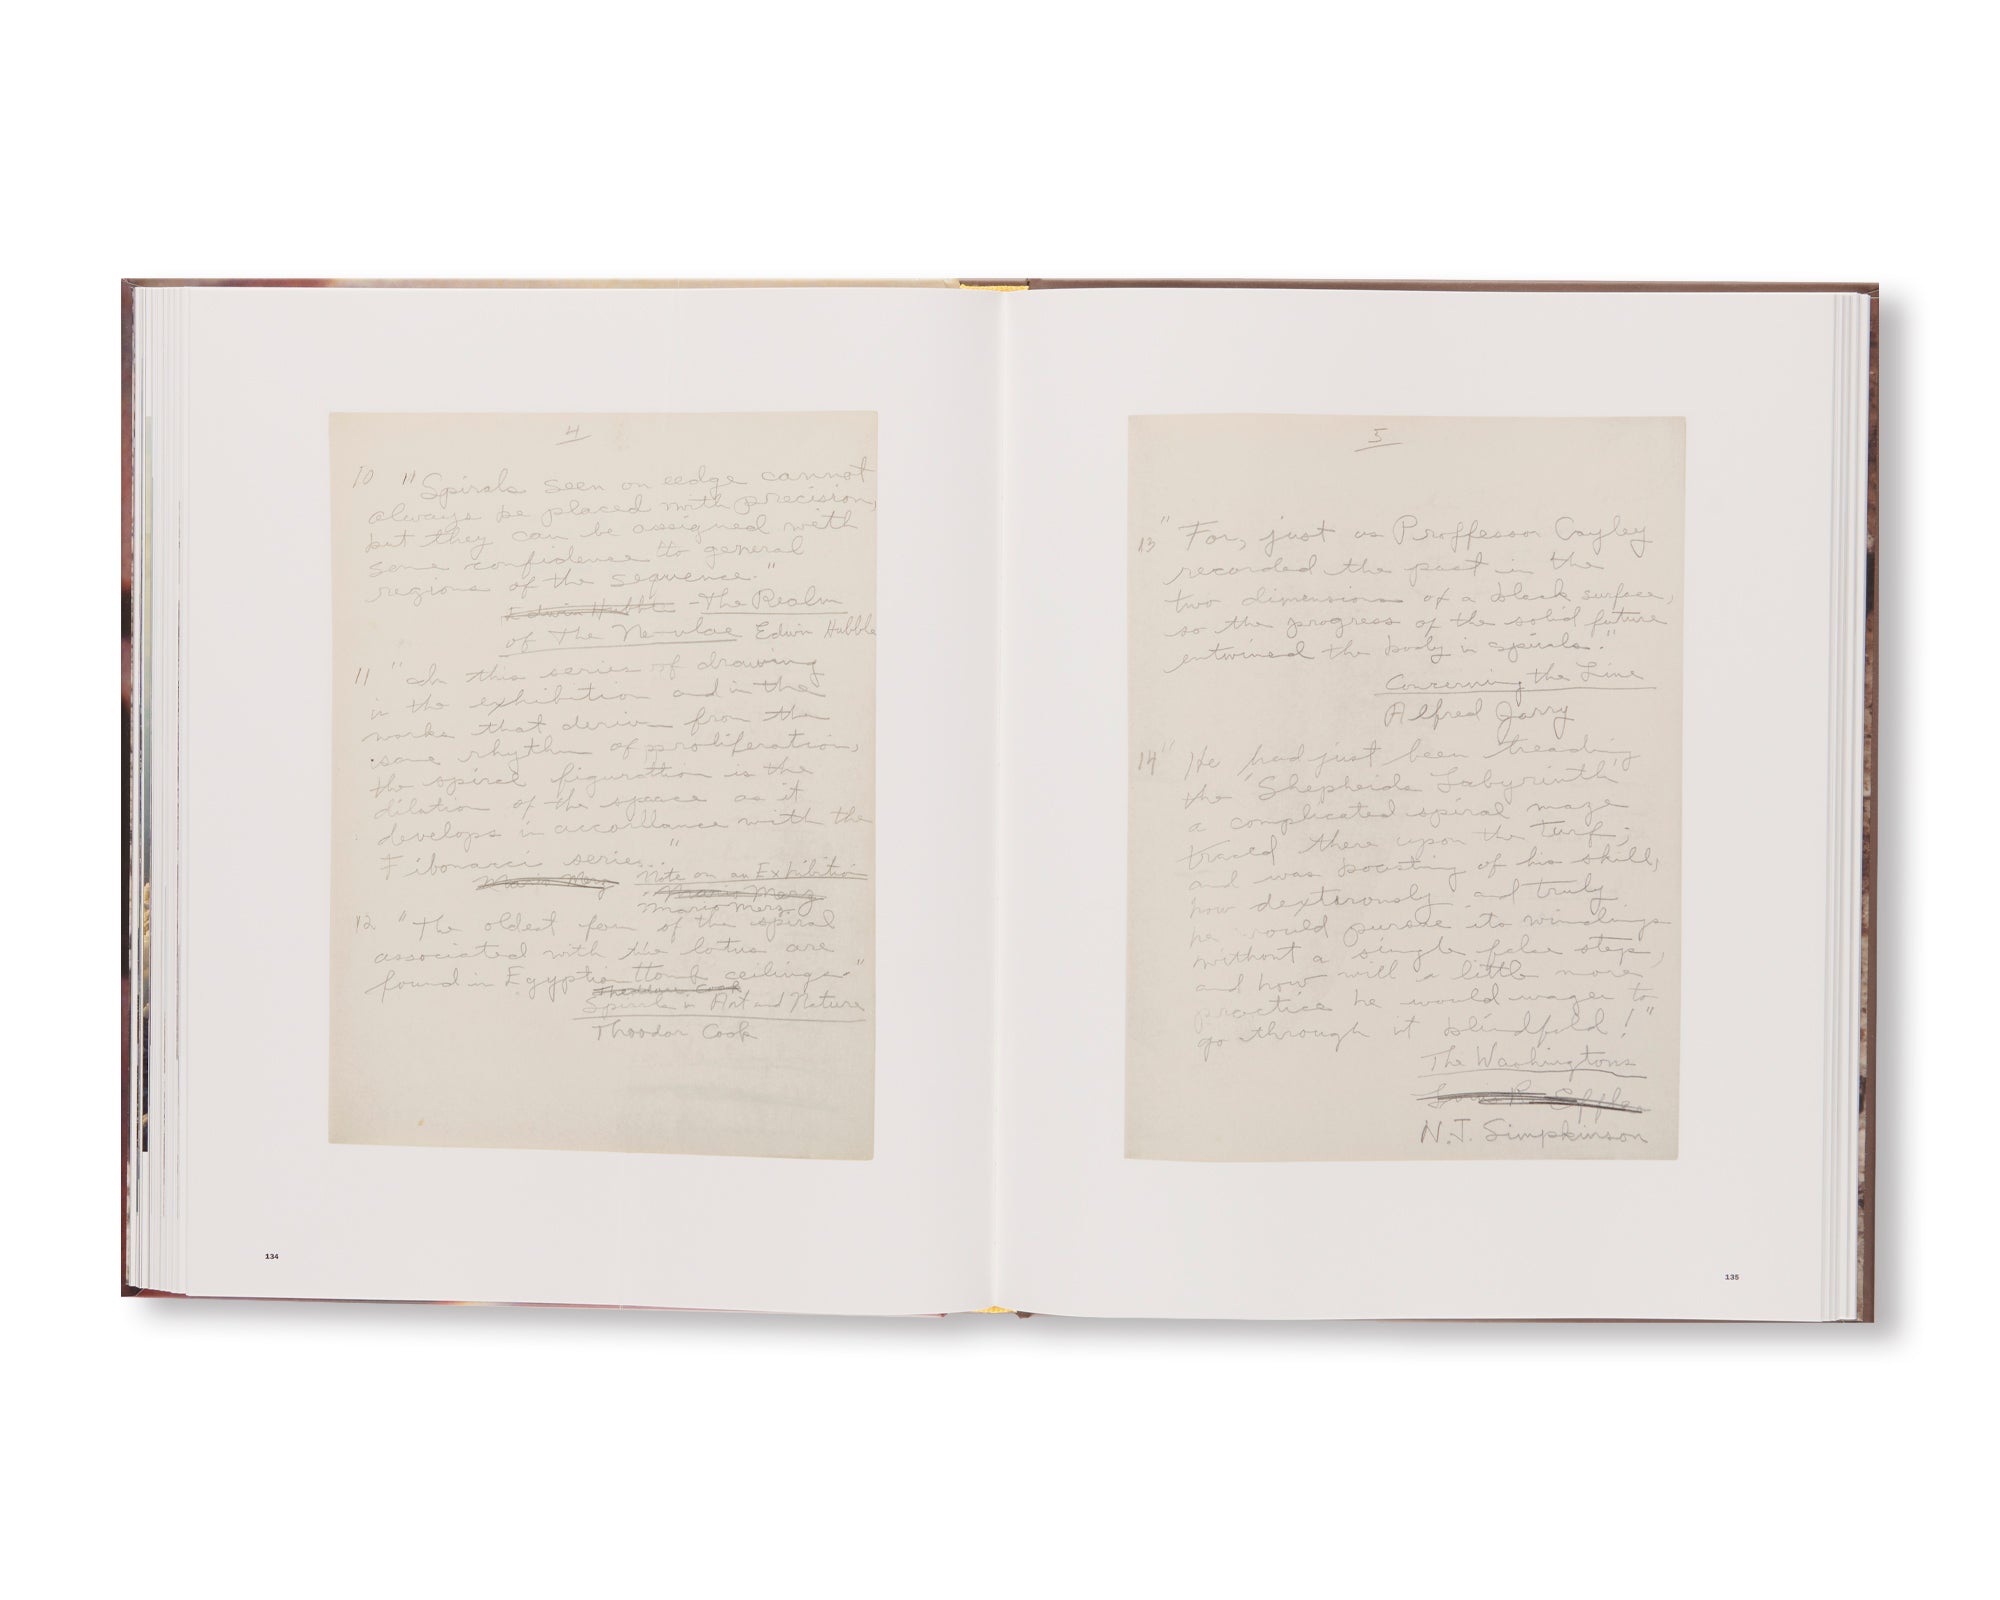 4
10 "Spirals seen on eedge cannot
always be placed with precision,
but they can be assigned with
some confidence to general
regions of the sequence."
Edwin Hubble - The Realm
of The Ne-ulae Edwin Hubble
11 "In this series of drawing
in the exhibition and in the
works that derive from the
same rhythm of pproliferation,
the spiral figuration is the
dilation of the space as it
develops in accordance with the
Fibonacci series..."
Mario Merz Note on an Exhibition
Mario Merz
Mario Merz
12. "The oldest form of the spiral
associated with the lotus are
found in Egyptian tomb ceilings."
Theodore Cook
Spirals in Art and Nature
Theodor Cook
134
5
13 "For, just as Proffessor Cayley
recorded the past in the
two dimensions of a black surface,
so the progress of the solid future
entwined the body in spirals."
Concerning the Line
Alfred Jarry
14 "He had just been treading
the 'Shepheids Labyrinth'
a complicated spiral maze
traced there upon the turf;
and was boasting of his skill,
how dexterously and truly
he would pursue its windings
without a single false step,
and how will a little more
practice he would wager to
go through it blindfold!"
The Washingtons
N.J. Simpkinson
135